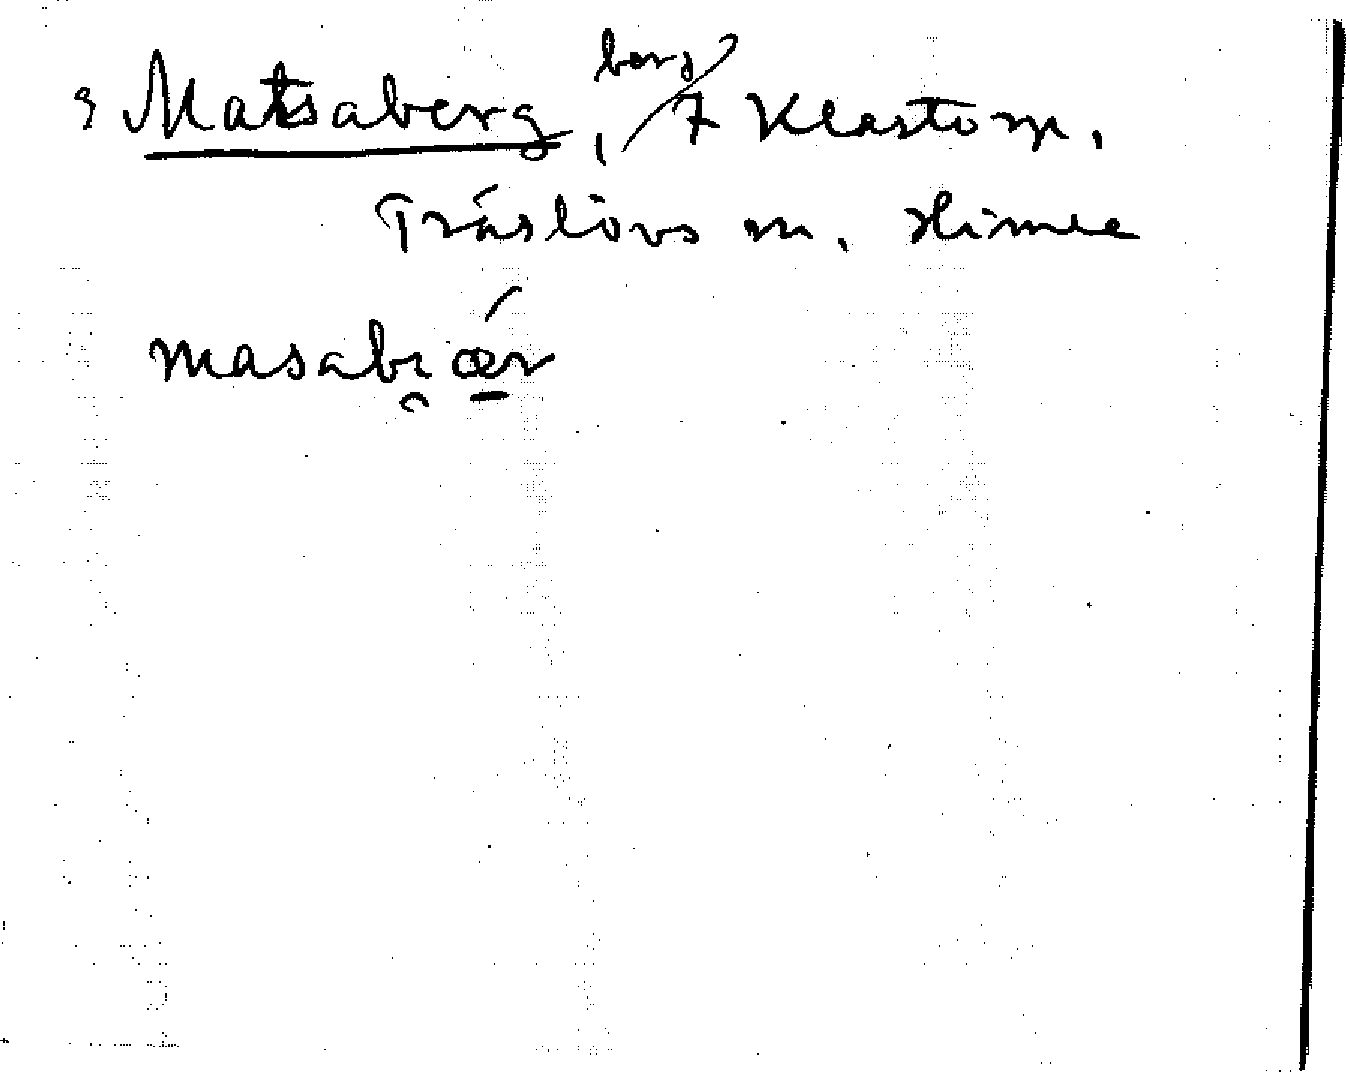 Matsaberg, berg 7 Klastorp.
Träslövs sn. Himle
masabi̯ǽ̠r